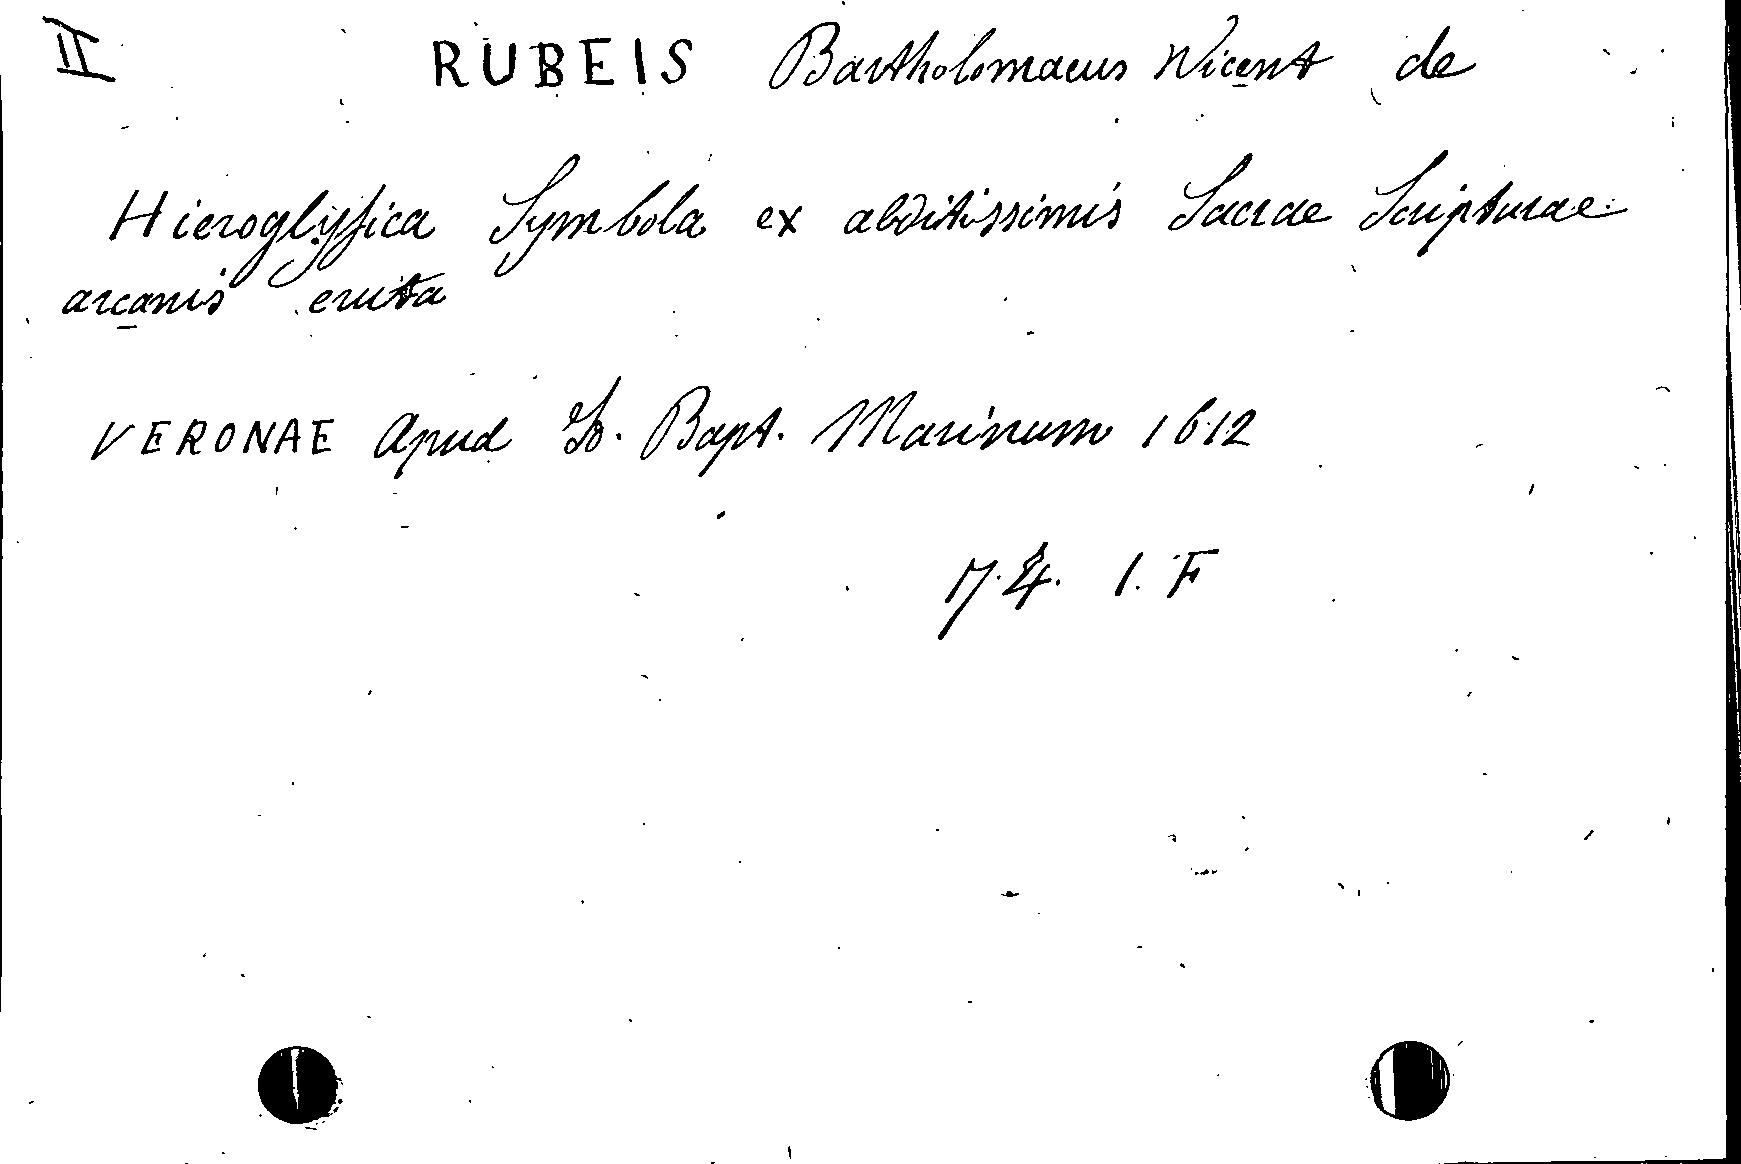 II RUBEIS Bartholomaeus Vicent de
Hieroglyfica Symbola ex abditissimis Sacrae Scripturae
arcanis eruta
VERONAE Apud Io. Bapt. Marinum 1612
17. 4. 1. F